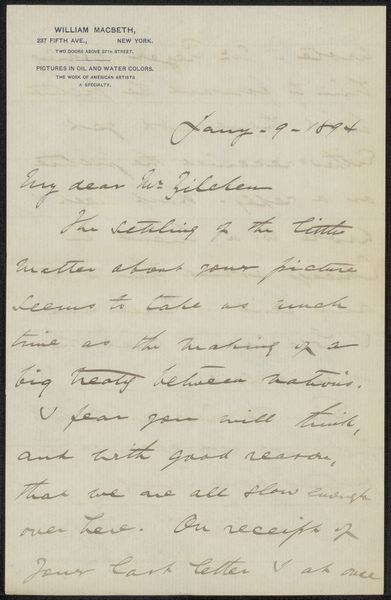 WILLIAM MACBETH,
237 FIFTH AVE., NEW YORK.
TWO DOORS ABOVE 27TH STREET.
PICTURES IN OIL AND WATER COLORS.
THE WORK OF AMERICAN ARTISTS
A SPECIALTY.
Jany - 9 - 1894
My dear Mr Zilcken
The settling of the little
matter about your picture
seems to take as much
time as the making of a
big treaty between nations.
I fear you will think,
and with good reason,
that we are all slow enough
over here. On receipt of
your last letter I at once